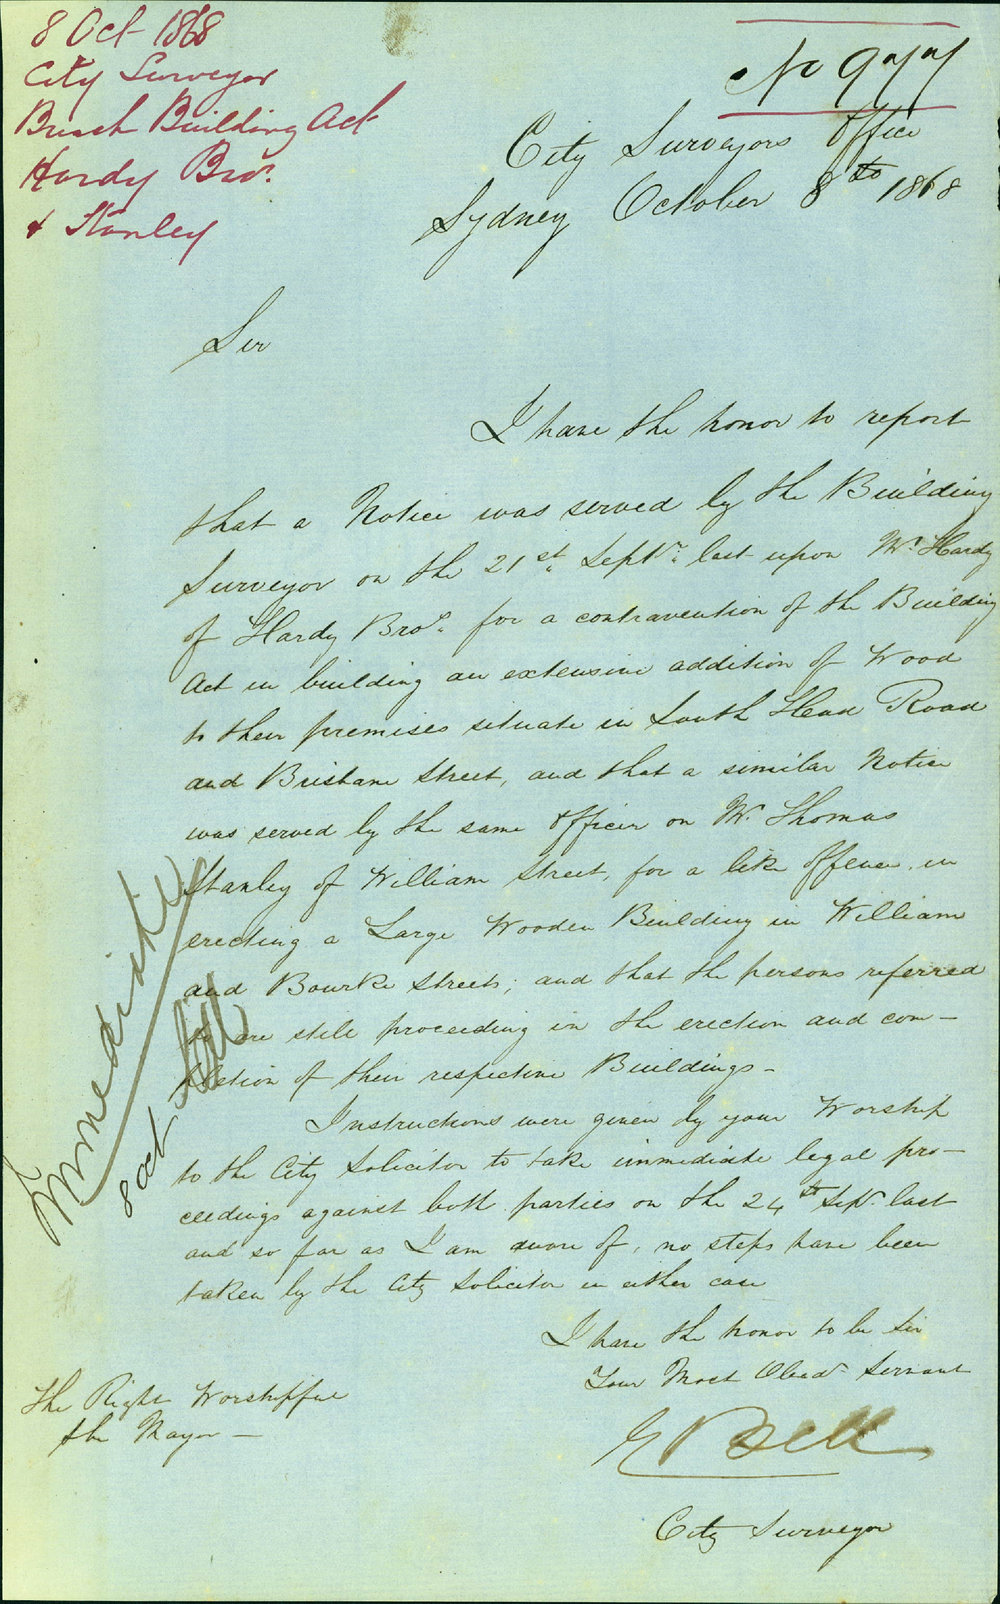 8 Oct 1868
City Surveyor
Breach Building Act
Hardy Bros.
& Stanley
No 977
City Surveyors Office
Sydney October 8th 1868
Sir
I have the honor to report
that a Notice was served by the Building
Surveyor on the 21st. Septr. last upon Mr. Hardy
of Hardy Bros. for a contravention of the Building
Act in building an extensive addition of Wood
to their premises situate in South Head Road
and Brisbane Street, and that a similar Notice
was served by the same Officer on Mr. Thomas
Stanley of William Street, for a like offence in
erecting a Large Wooden Building in William
and Bourke Streets; and that the persons referred
to are still proceeding in the erection and com-
pletion of their respective Buildings -
Instructions were given by your Worship
to the City Solicitor to take immediate legal pro-
ceedings against both parties on the 24th Sepr. last
and so far as I am aware of, no steps have been
taken by the City Solicitor in either case
I have the honor to be Sir
Your Most Obedt Servant
E Bell
City Surveyor
The Right Worshipful
the Mayor -
Immediate
8 Oct